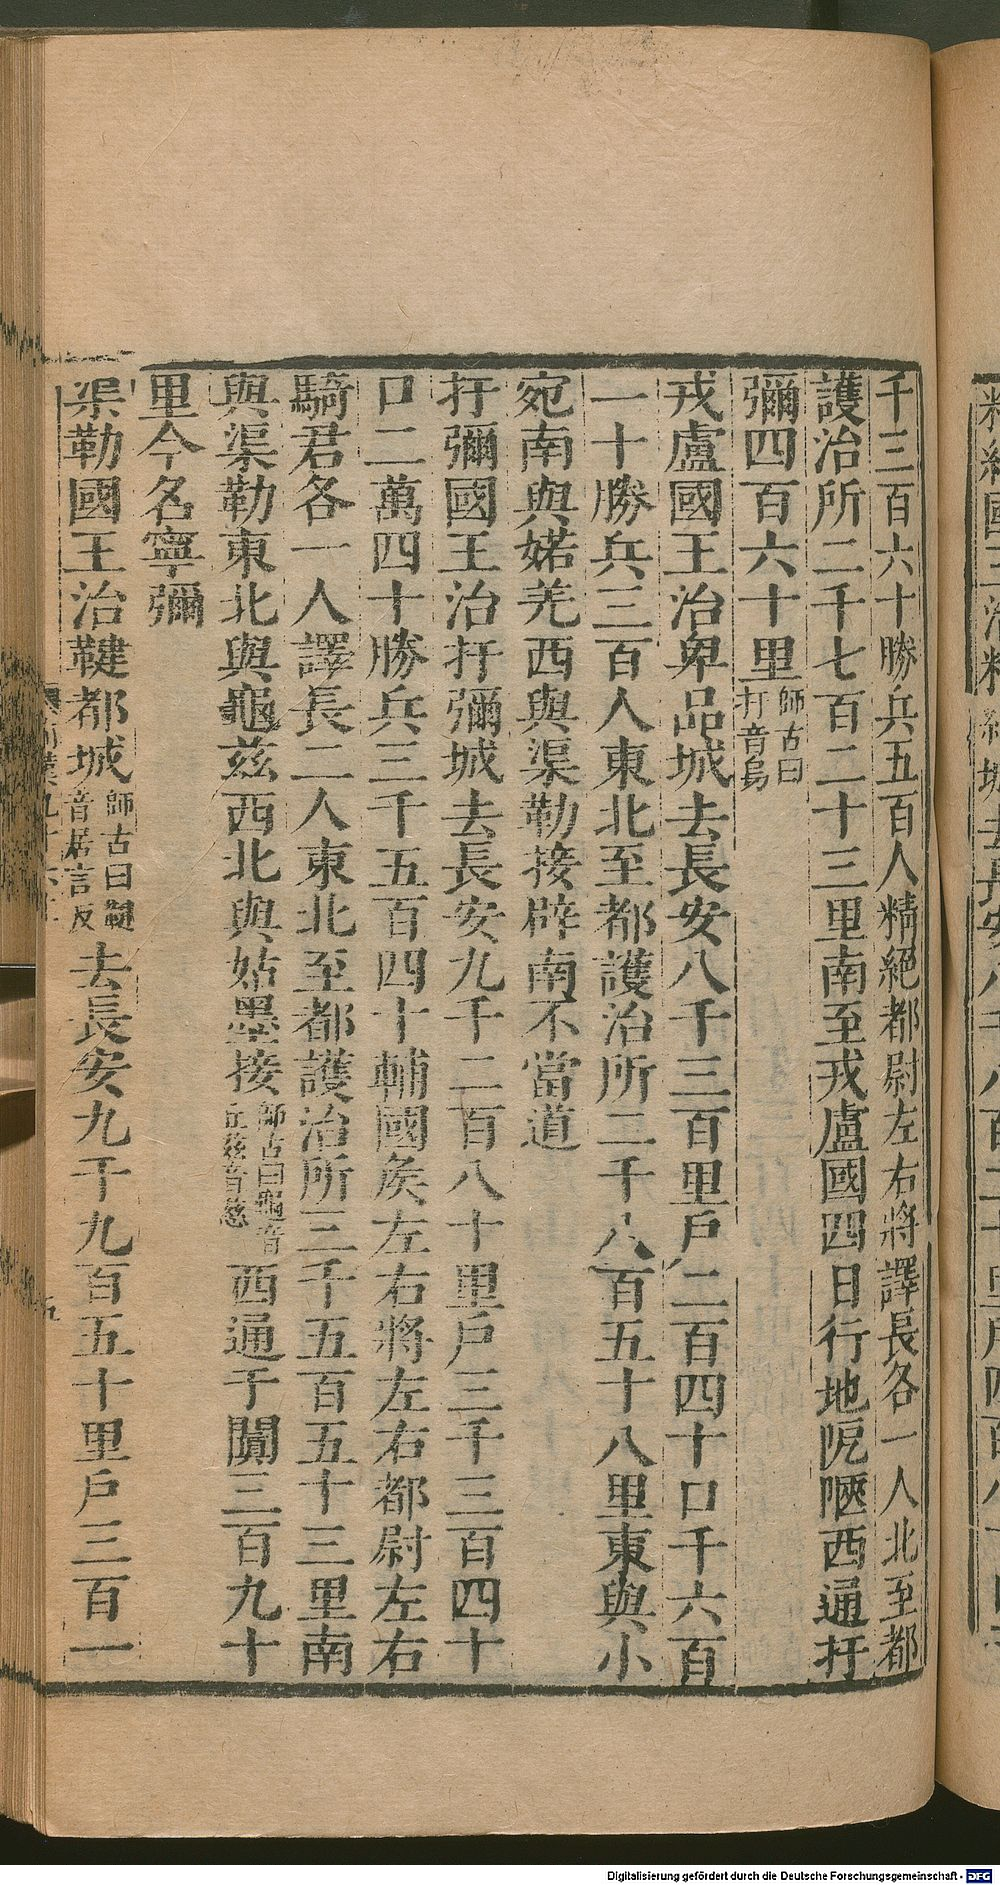 千三百六十勝兵五百人精絕都尉左右將譯長各一人北至都
護治所二千七百二十三里南至戎盧國四日行地阸陿西通扜
彌四百六十里師古曰扜音烏
戎盧國王治卑品城去長安八千三百里戶二百四十口千六百
一十勝兵三百人東北至都護治所二千八百五十八里東與小
宛南與婼羌西與渠勒接辟南不當道
扜彌國王治扜彌城去長安九千二百八十里戶三千三百四十
口二萬四十勝兵三千五百四十輔國矦左右將左右都尉左右
騎君各一人譯長二人東北至都護治所三千五百五十三里南
與渠勒東北與龜茲西北與姑墨接師古曰龜音丘茲音慈西通于闐三百九十
里今名寧彌
渠勒國王治鞬都城師古曰鞬音居言反去長安九千九百五十里戶三百一
Digitalisierung gefördert durch die Deutsche Forschungsgemeinschaft - DFG